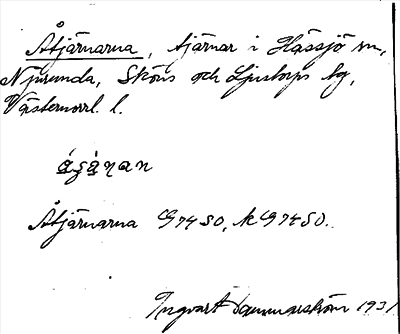 Åtjärnarna, tjärnar i Hässjö sn,
Njurunda, Sköns och Ljustorps tg,
Västernorrl. l.
Åtjärnarna G74SO, kG74SO.
Ingvart Dammarström 1931